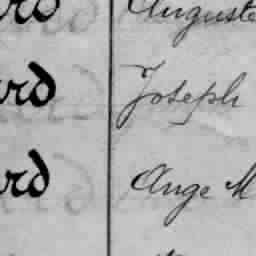 ard Auguste
ard Joseph
ard Ange M